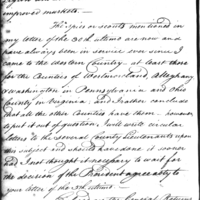 improved markets.
The spies or scouts mentioned in
my letter of the 20th ultimo are now and
have always been in service ever since I
came to the Western Country, at least those
for the Counties of Westmoreland, Alleghany
& Washington in Pennsylvania and Ohio
County in Virginia, and I rather conclude
that all the other Counties have them — however
to put it out of question I will write circular
letters to the several County Lieutenants upon
this subject and should have done it sooner
had I not thought it necessary to wait for
the decision of the President agreeably to
your letter of the 3th ultimo.
the General Returns